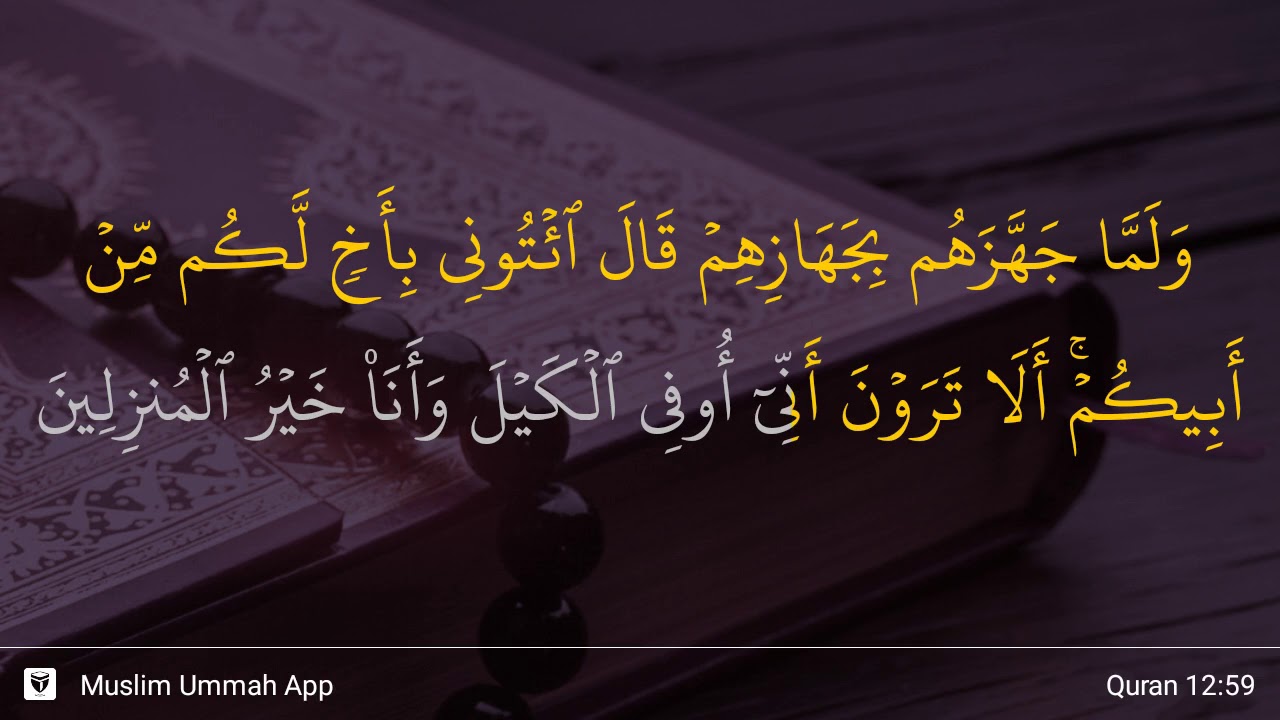 وَلَمَّا جَهَّزَهُم بِجَهَازِهِمۡ قَالَ ٱئۡتُونِي بِأَخٖ لَّكُم مِّنۡ
أَبِيكُمۡۚ أَلَا تَرَوۡنَ أَنِّيٓ أُوفِي ٱلۡكَيۡلَ وَأَنَا۠ خَيۡرُ ٱلۡمُنزِلِينَ
Muslim Ummah App
Quran 12:59